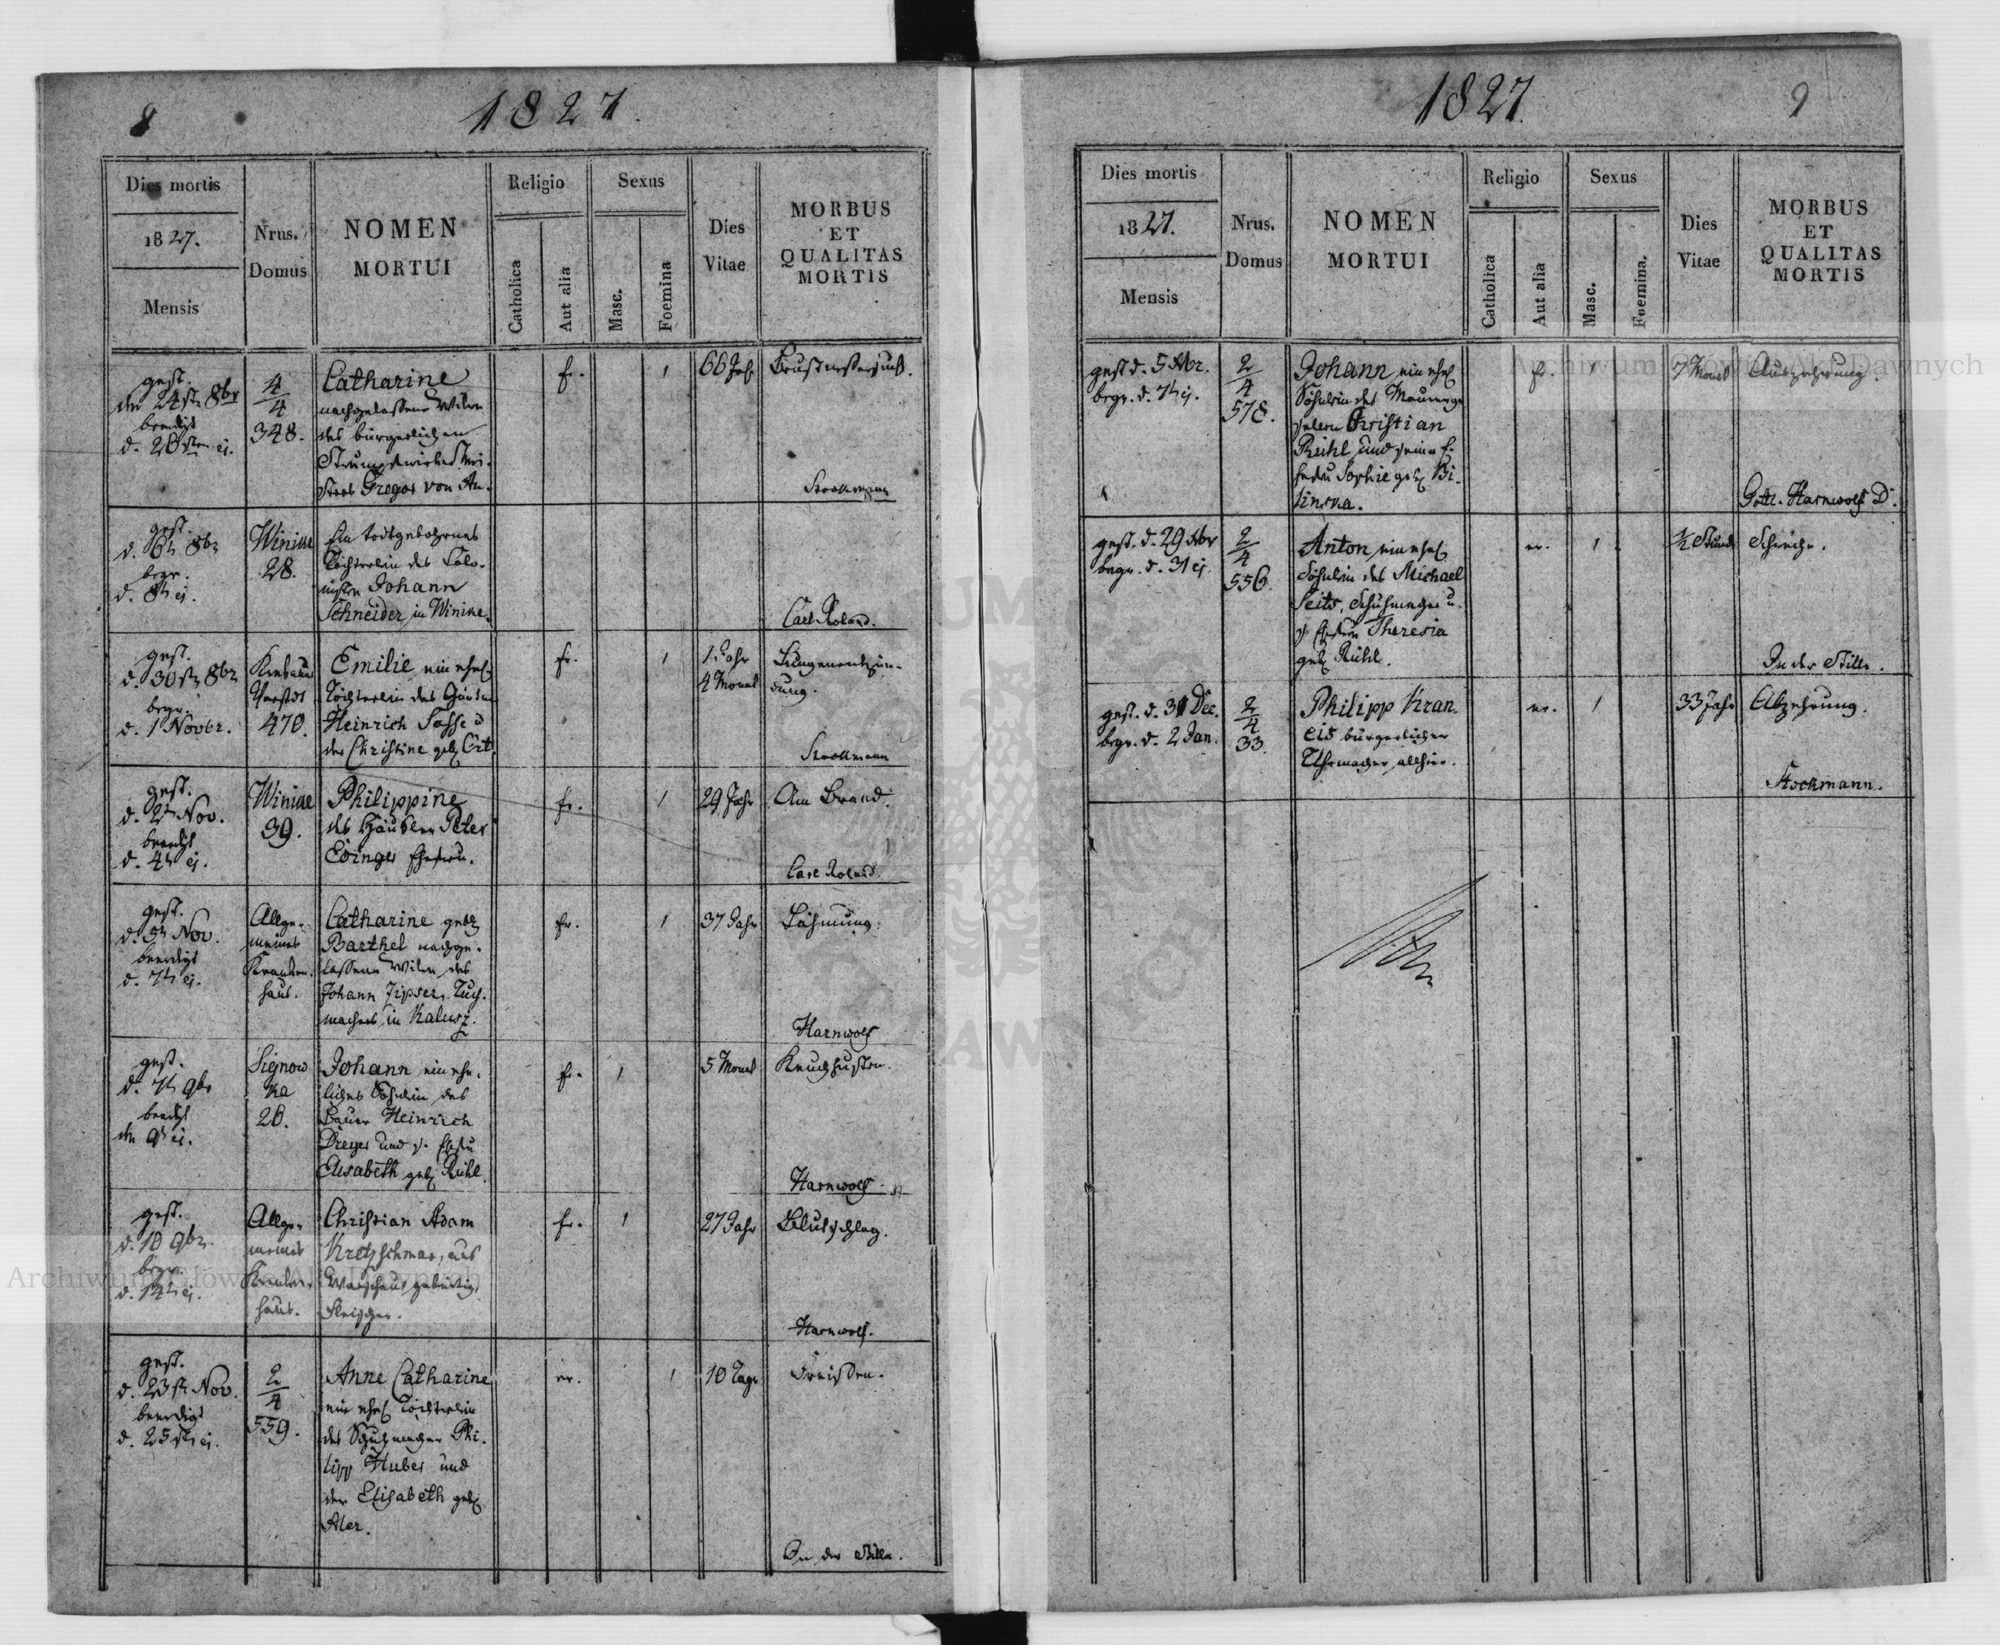 8
1827.
Dies mortis
1827.
Mensis
Nrus.
Domus
NOMEN
MORTUI
Religio
Catholica
Aut alia
Sexus
Masc.
Foemina
Dies
Vitae
MORBUS
ET
QUALITAS
MORTIS
gest.
den 24st 8br
beerdigt
d. 26sten ej.
4/4
348.
Catharine
nachgelassene Witwe
des bürgerlichen
Strumpfwirker Mei-
sters Gregor von An.
1
66 Jah
Brustwassersucht.
Stockmann
gest.
d. 6t 8br
begr.
d. 8t ej.
Winike
28.
Ein todtgebohrenes
Töchterlein des Colo-
nisten Johann
Schneider in Winike.
Carl Roland.
gest.
d. 30st 8br
begr.
d. 1 Novbr.
Vorstdt
470.
Emilie ein ehel
Töchterlein des
Heinrich Sasse u
der Christine geb
1
1 Jahr
4 Monat
Lungenentzün-
dung.
Stockmann
gest.
d. 2t Nov.
beerdigt
d. 4t ej.
Winike
39.
Philippine
des Häusler Peter
Edinger Ehefrau.
1
29 Jahr
Am Brand.
Carl Roland.
gest.
d. 5t Nov.
beerdigt
d. 7t ej.
Allge-
meines
Kranken-
haus.
Catharine geb
Barthel nachge-
lassene Witwe des
Johann Zipser, Tuch-
machers in Kalusz.
1
37 Jahr
Lähmung.
Harnwolf
gest.
d. 7t 9br
beerdigt
den 9t ej.
Signow
ka
28.
Johann ein ehe-
liches Söhnlein des
Bauer Heinrich
Dreyer und s. Ehefrau
Elisabeth geb Rühl.
1
5 Monat
Keuchhusten.
Harnwolf
gest.
d. 10 9br.
begr.
d. 12t ej.
Allge-
meines
Kranken-
haus.
Christian Adam
Kretzschmar, aus
Warschau gebürtig,
Fleischer.
1
27 Jahr
Blutschlag.
Harnwolf.
gest.
d. 23st Nov.
beerdigt
d. 25st ej.
2/4
559.
Anne Catharine
ein ehel Töchterlein
des Schuhmacher Phi-
lipp Huber und
der Elisabeth geb
Aler.
1
10 Tage
Fraisen.
In der Stille.
1827.
9
Dies mortis
1827.
Mensis
Nrus.
Domus
NOMEN
MORTUI
Religio
Catholica
Aut alia
Sexus
Masc.
Foemina.
Dies
Vitae
MORBUS
ET
QUALITAS
MORTIS
gest d. 5 Xbr.
begr. d. 7t ej.
2/4
578.
Johann ein ehel
Söhnlein des Maurerge-
sellen Christian
Rühl und seiner E-
hefrau Sophie geb Bi-
linska.
1
7 Monat
Auszehrung.
Gottl. Harnwolf D.
gest. d. 29 Xbr
begr. d. 31 ej.
2/4
556.
Anton, ein ehel
Söhnlein des Michael
Seits, Schuhmacher u.
s. Ehefrau Theresia
geb Rühl.
ev.
1
1/2 Stunde
Schwäche.
In der Stille.
gest. d. 31 Dec.
begr. d. 2 Jan.
2/4
33.
Philipp Kran-
bürgerlicher
Uhrmacher allhier.
ev.
1
33 Jahr
Abzehrung.
Stockmann.
Archiwum Główne Akt Dawnych
Archiwum Główne Akt Dawnych